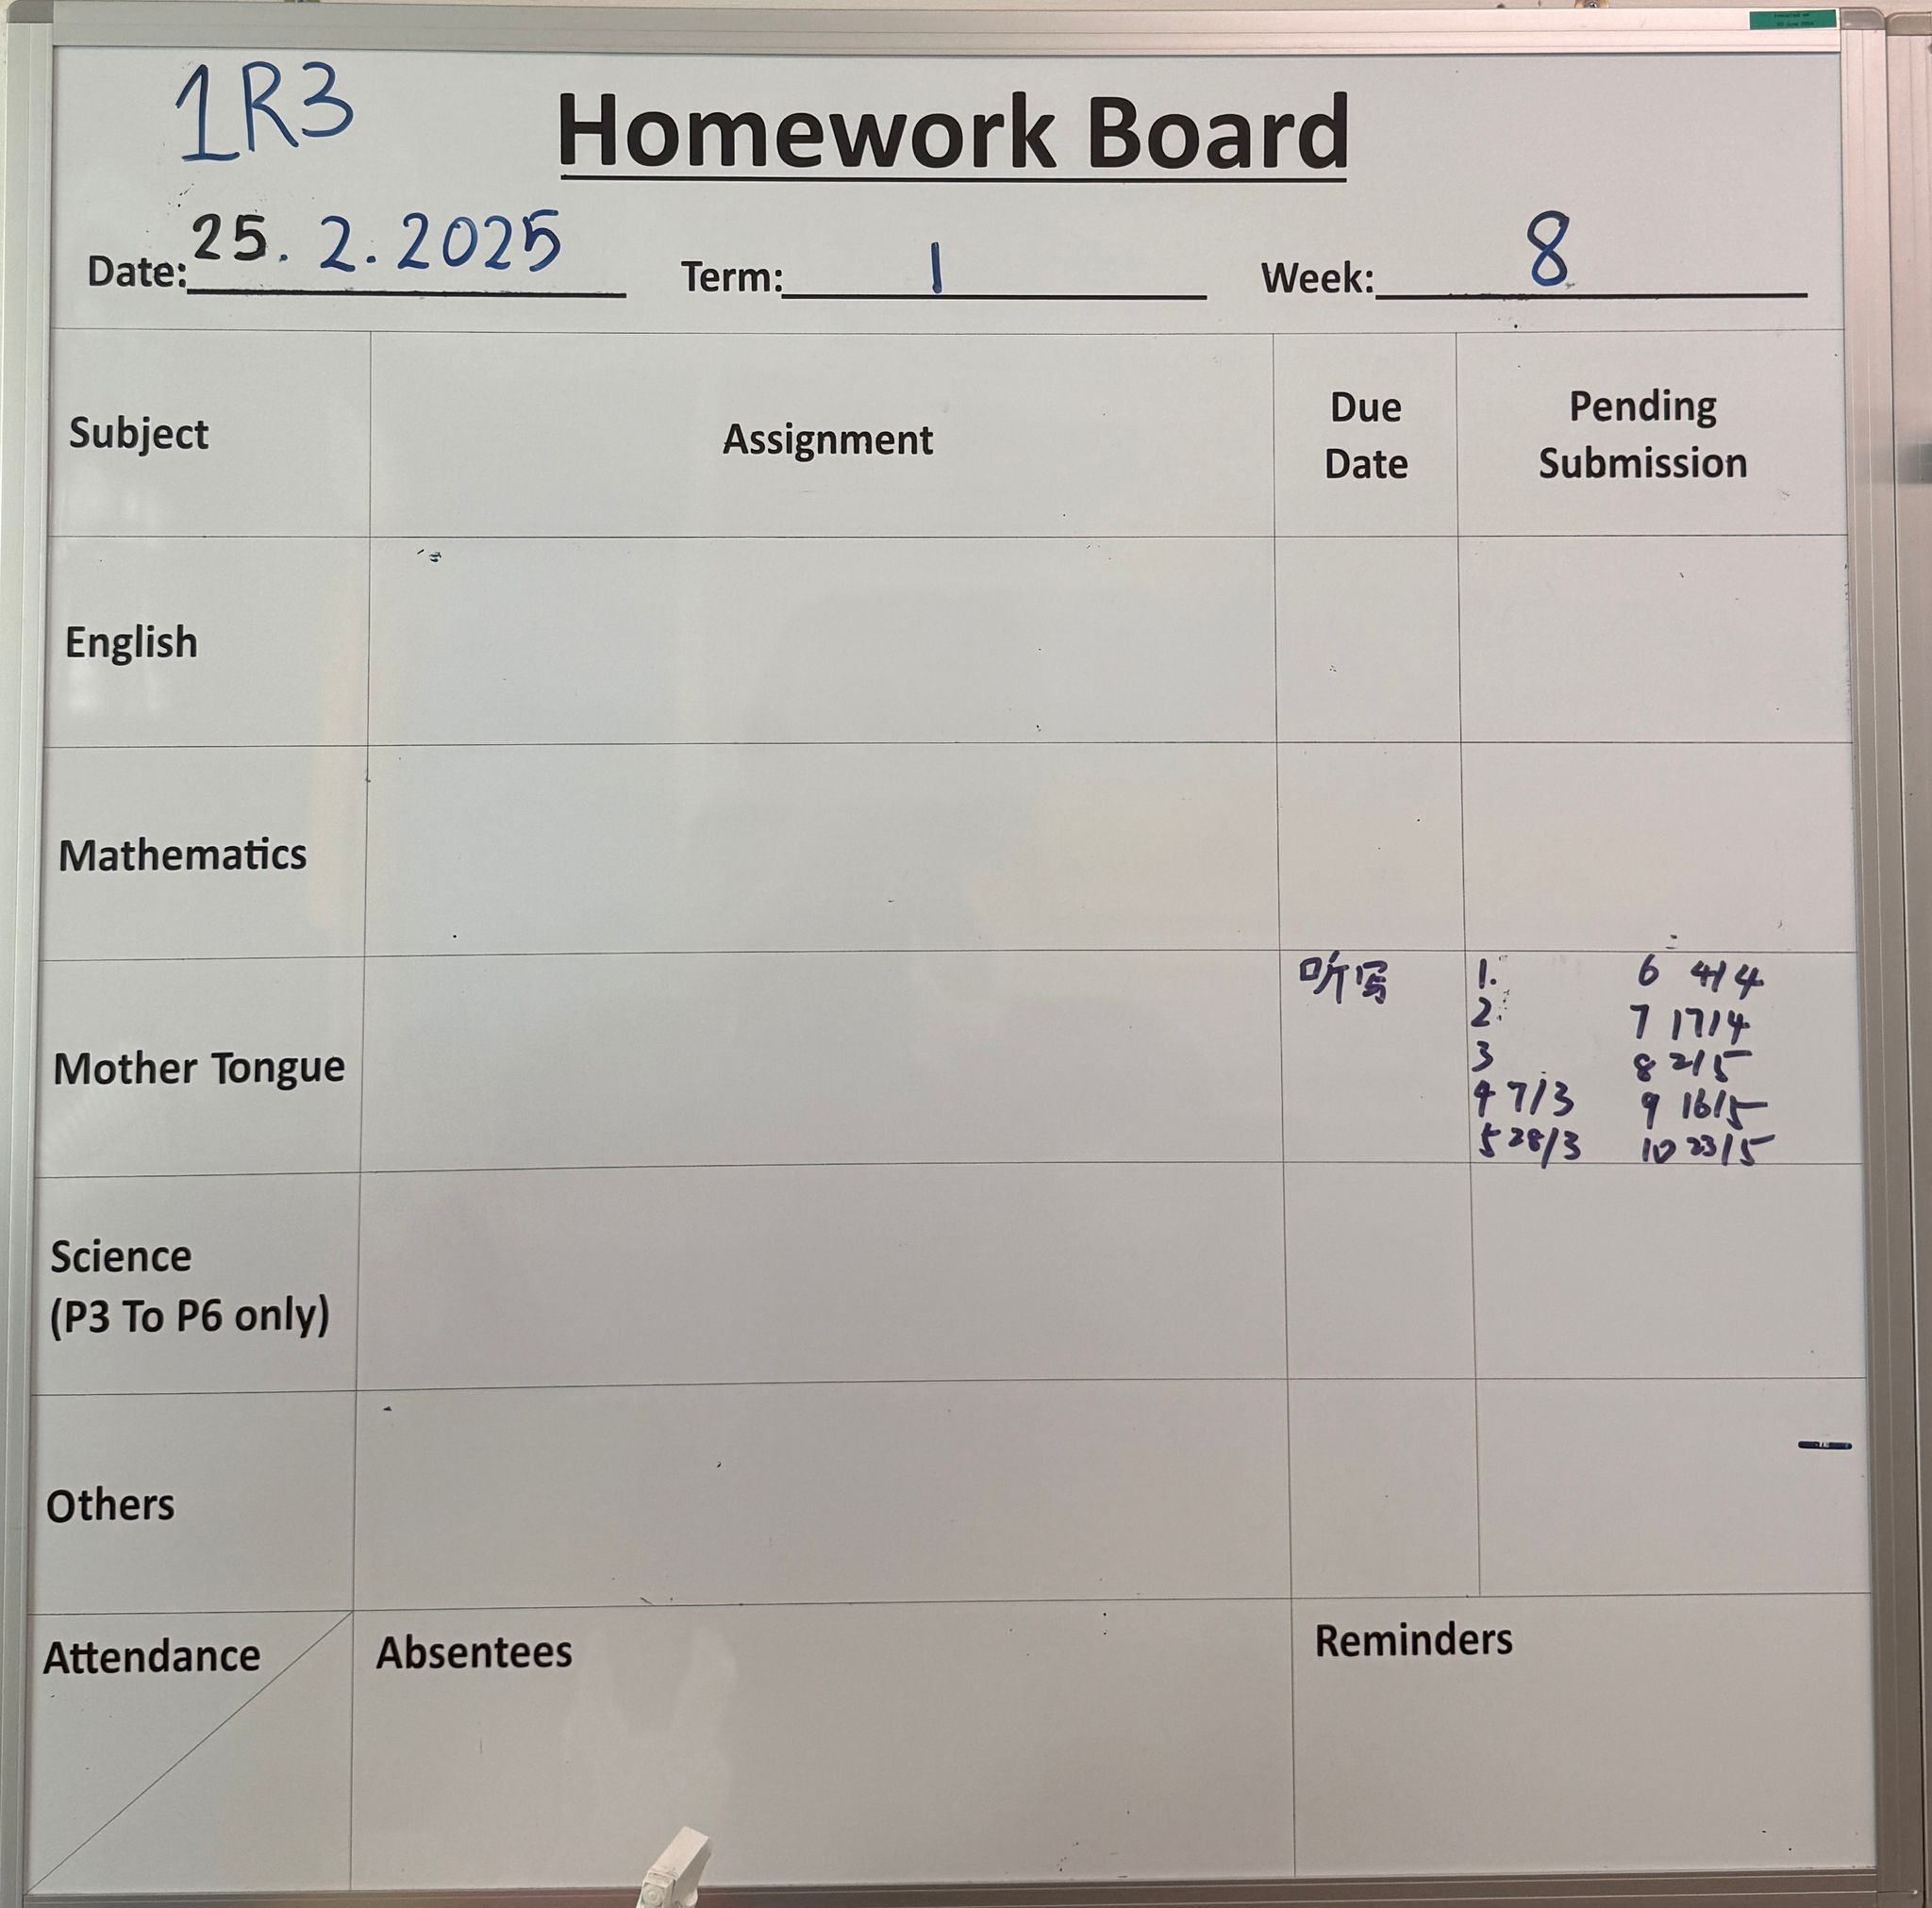 1R3
Homework Board
Date: 25. 2. 2025 Term: 1 Week: 8
Subject Assignment Due Date Pending Submission
English
Mathematics
Mother Tongue 听写
1. 6 4/4
2. 7 17/4
3 8 2/5
4 7/3 9 16/5
5 28/3 10 23/5
Science
(P3 To P6 only)
Others
Attendance Absentees Reminders